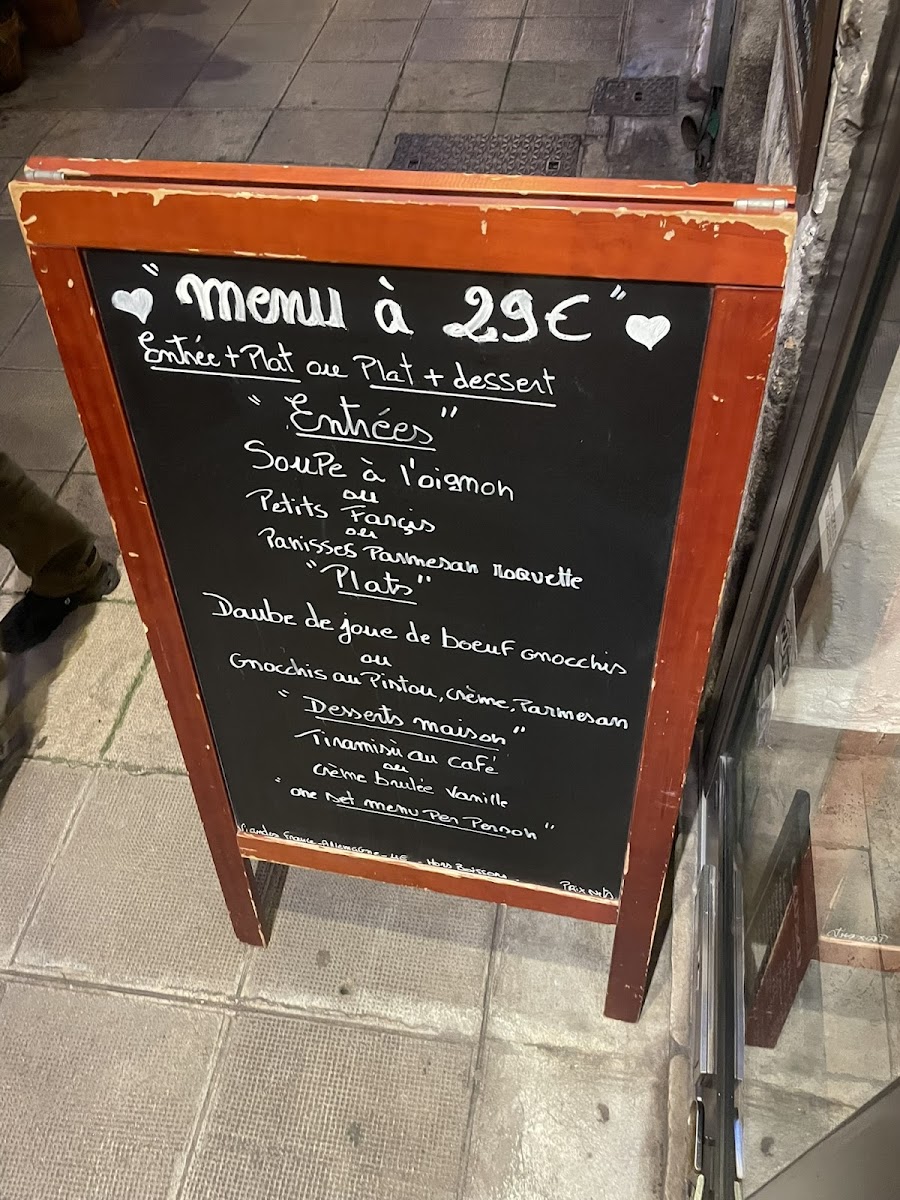 "Menu à 29€"
Entrée + Plat ou Plat + dessert
"Entrées"
Soupe à l'oignon
ou
Petits Farçis
ou
Panisses Parmesan Roquette
"Plats"
Daube de joue de boeuf gnocchis
ou
Gnocchis au Pistou, crème, Parmesan
"Desserts maison"
Tiramisù au café
ou
crème brulée Vanille
"one set menu Per Person"
Viandes France - Allemagne - UE - Hors Boisson.
Prix nets